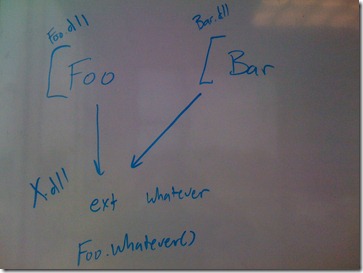 Foo.dll
Bar.dll
Foo
Bar
X.dll
ext whatever
Foo.Whatever()